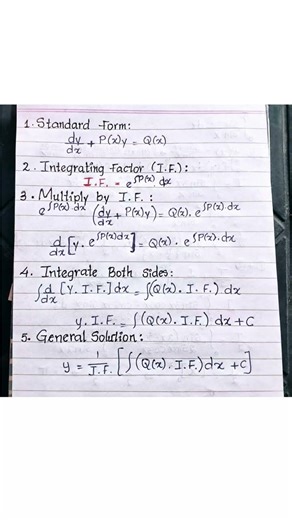 1. Standard Form:
dy/dx + P(x)y = Q(x)
2. Integrating Factor (I.F.):
I.F. = e^∫P(x) dx
3. Multiply by I.F. :
e^∫P(x) dx (dy/dx + P(x)y) = Q(x). e^∫P(x) dx
d/dx [y. e^∫P(x)dx] = Q(x) . e^∫P(x).dx
4. Integrate Both Sides:
∫d/dx [y. I.F.] dx = ∫(Q(x). I. F.) dx
y. I.F. = ∫(Q(x). I.F.) dx + C
5. General Solution:
y = 1/I.F. [∫(Q(x). I.F.)dx + C]